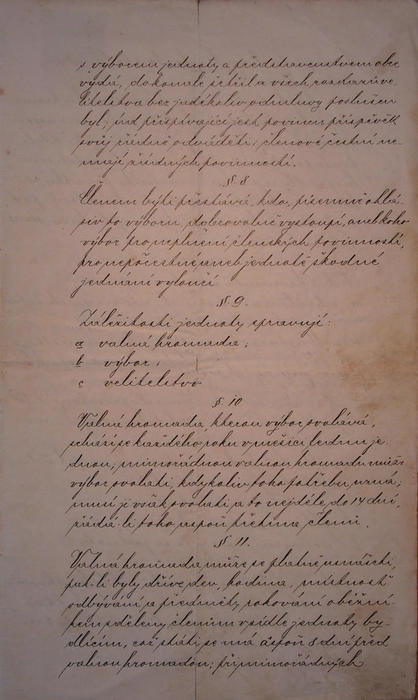 s výborem jednoty a představenstvem obce
vydá, dokonale šetřil a všech rozkazů ve-
litelstva bez jakékoliv odmluvy poslušen
byl; úd přispívající jest povinen příspěvek
svůj řádně odváděti; členové čestní ne-
mají žádných povinností.
§ 8
Členem býti přestává, kdo, písemně ohlá-
siv to výboru, dobrovolně vystoupí, aneb koho
výbor pro neplnění členských povinností,
pro nepočestné aneb jednotě škodné
jednání vyloučí
§ 9.
Záležitosti jednoty spravují:
a valná hromada;
b výbor;
c velitelstvo
§ 10
Valná hromada, kterou výbor svolává,
schází se každého roku v měsíci lednu je-
dnou; mimořádnou valnou hromadu může
výbor svolati, kdykoliv toho potřebu uzná;
musí ji však svolati, a to nejdéle do 14 dní,
žádá-li toho aspoň třetina členů.
§ 11.
Valná hromada může se platně usnášeti,
pak-li byly dříve den, hodina, místnost
odbývání a předměty rokování oběžní-
kem sděleny členům v sídle jednoty by-
dlícím, což státi se má aspoň 8 dní před
valnou hromadou; při mimořádných